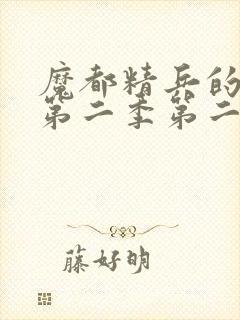 魔都精兵的
第二季第二
藤好明